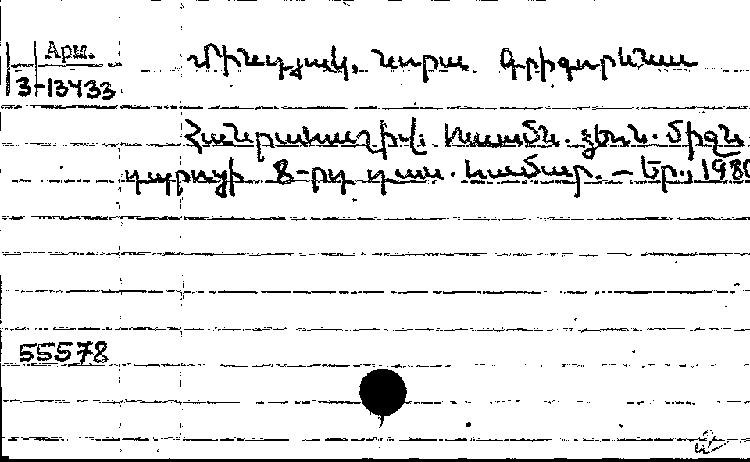 Арм.
3-13433
Մինդյուկ, Նորա Գրիգորևնա
Հանրահաշիվ. Ուսումն. ձեռն. միջն.
դպրոցի 8-րդ դաս. համար. – Եր., 1980
55578